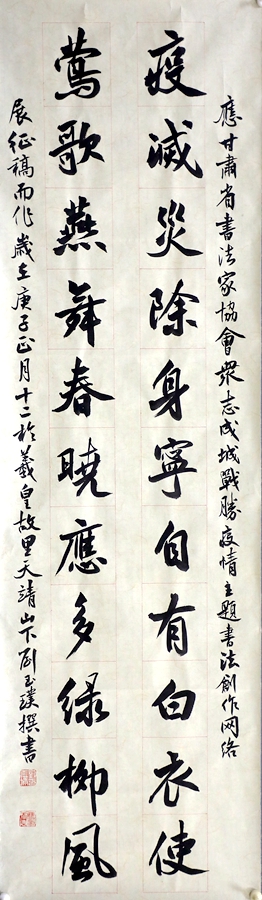 應甘肅省書法家協會衆志成城戰勝疫情主題書法創作网络
疫滅災除身寧自有白衣使
莺歌燕舞春曉應多绿柳風
展征稿而作歲在庚子正月十二於羲皇故里天靖山下劉玉璞撰書